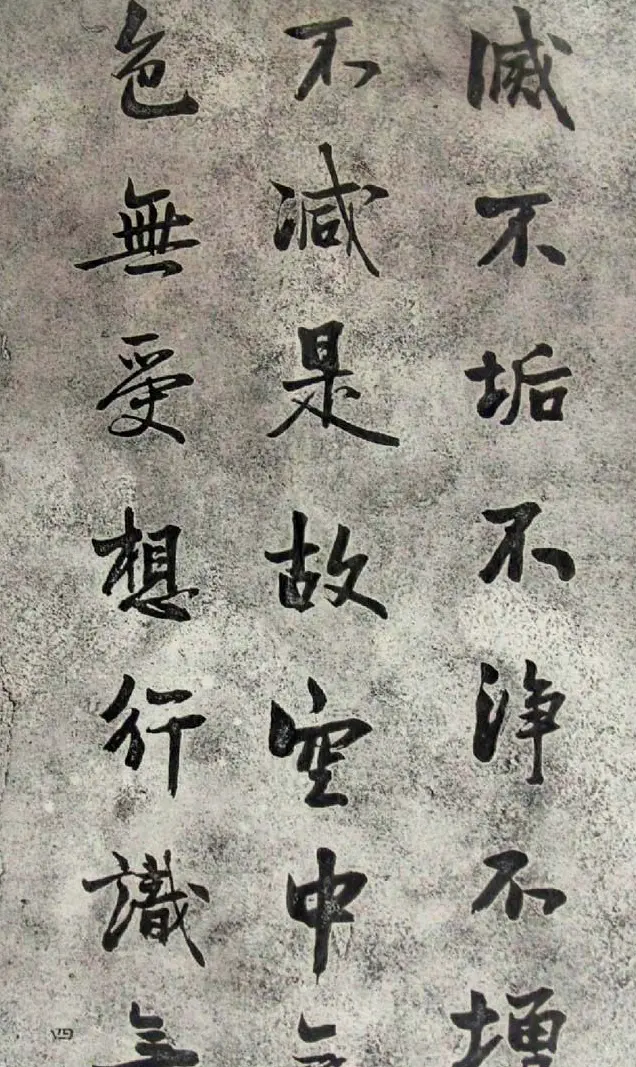 滅不垢不淨不增
不減是故空中無
色無受想行識無
四